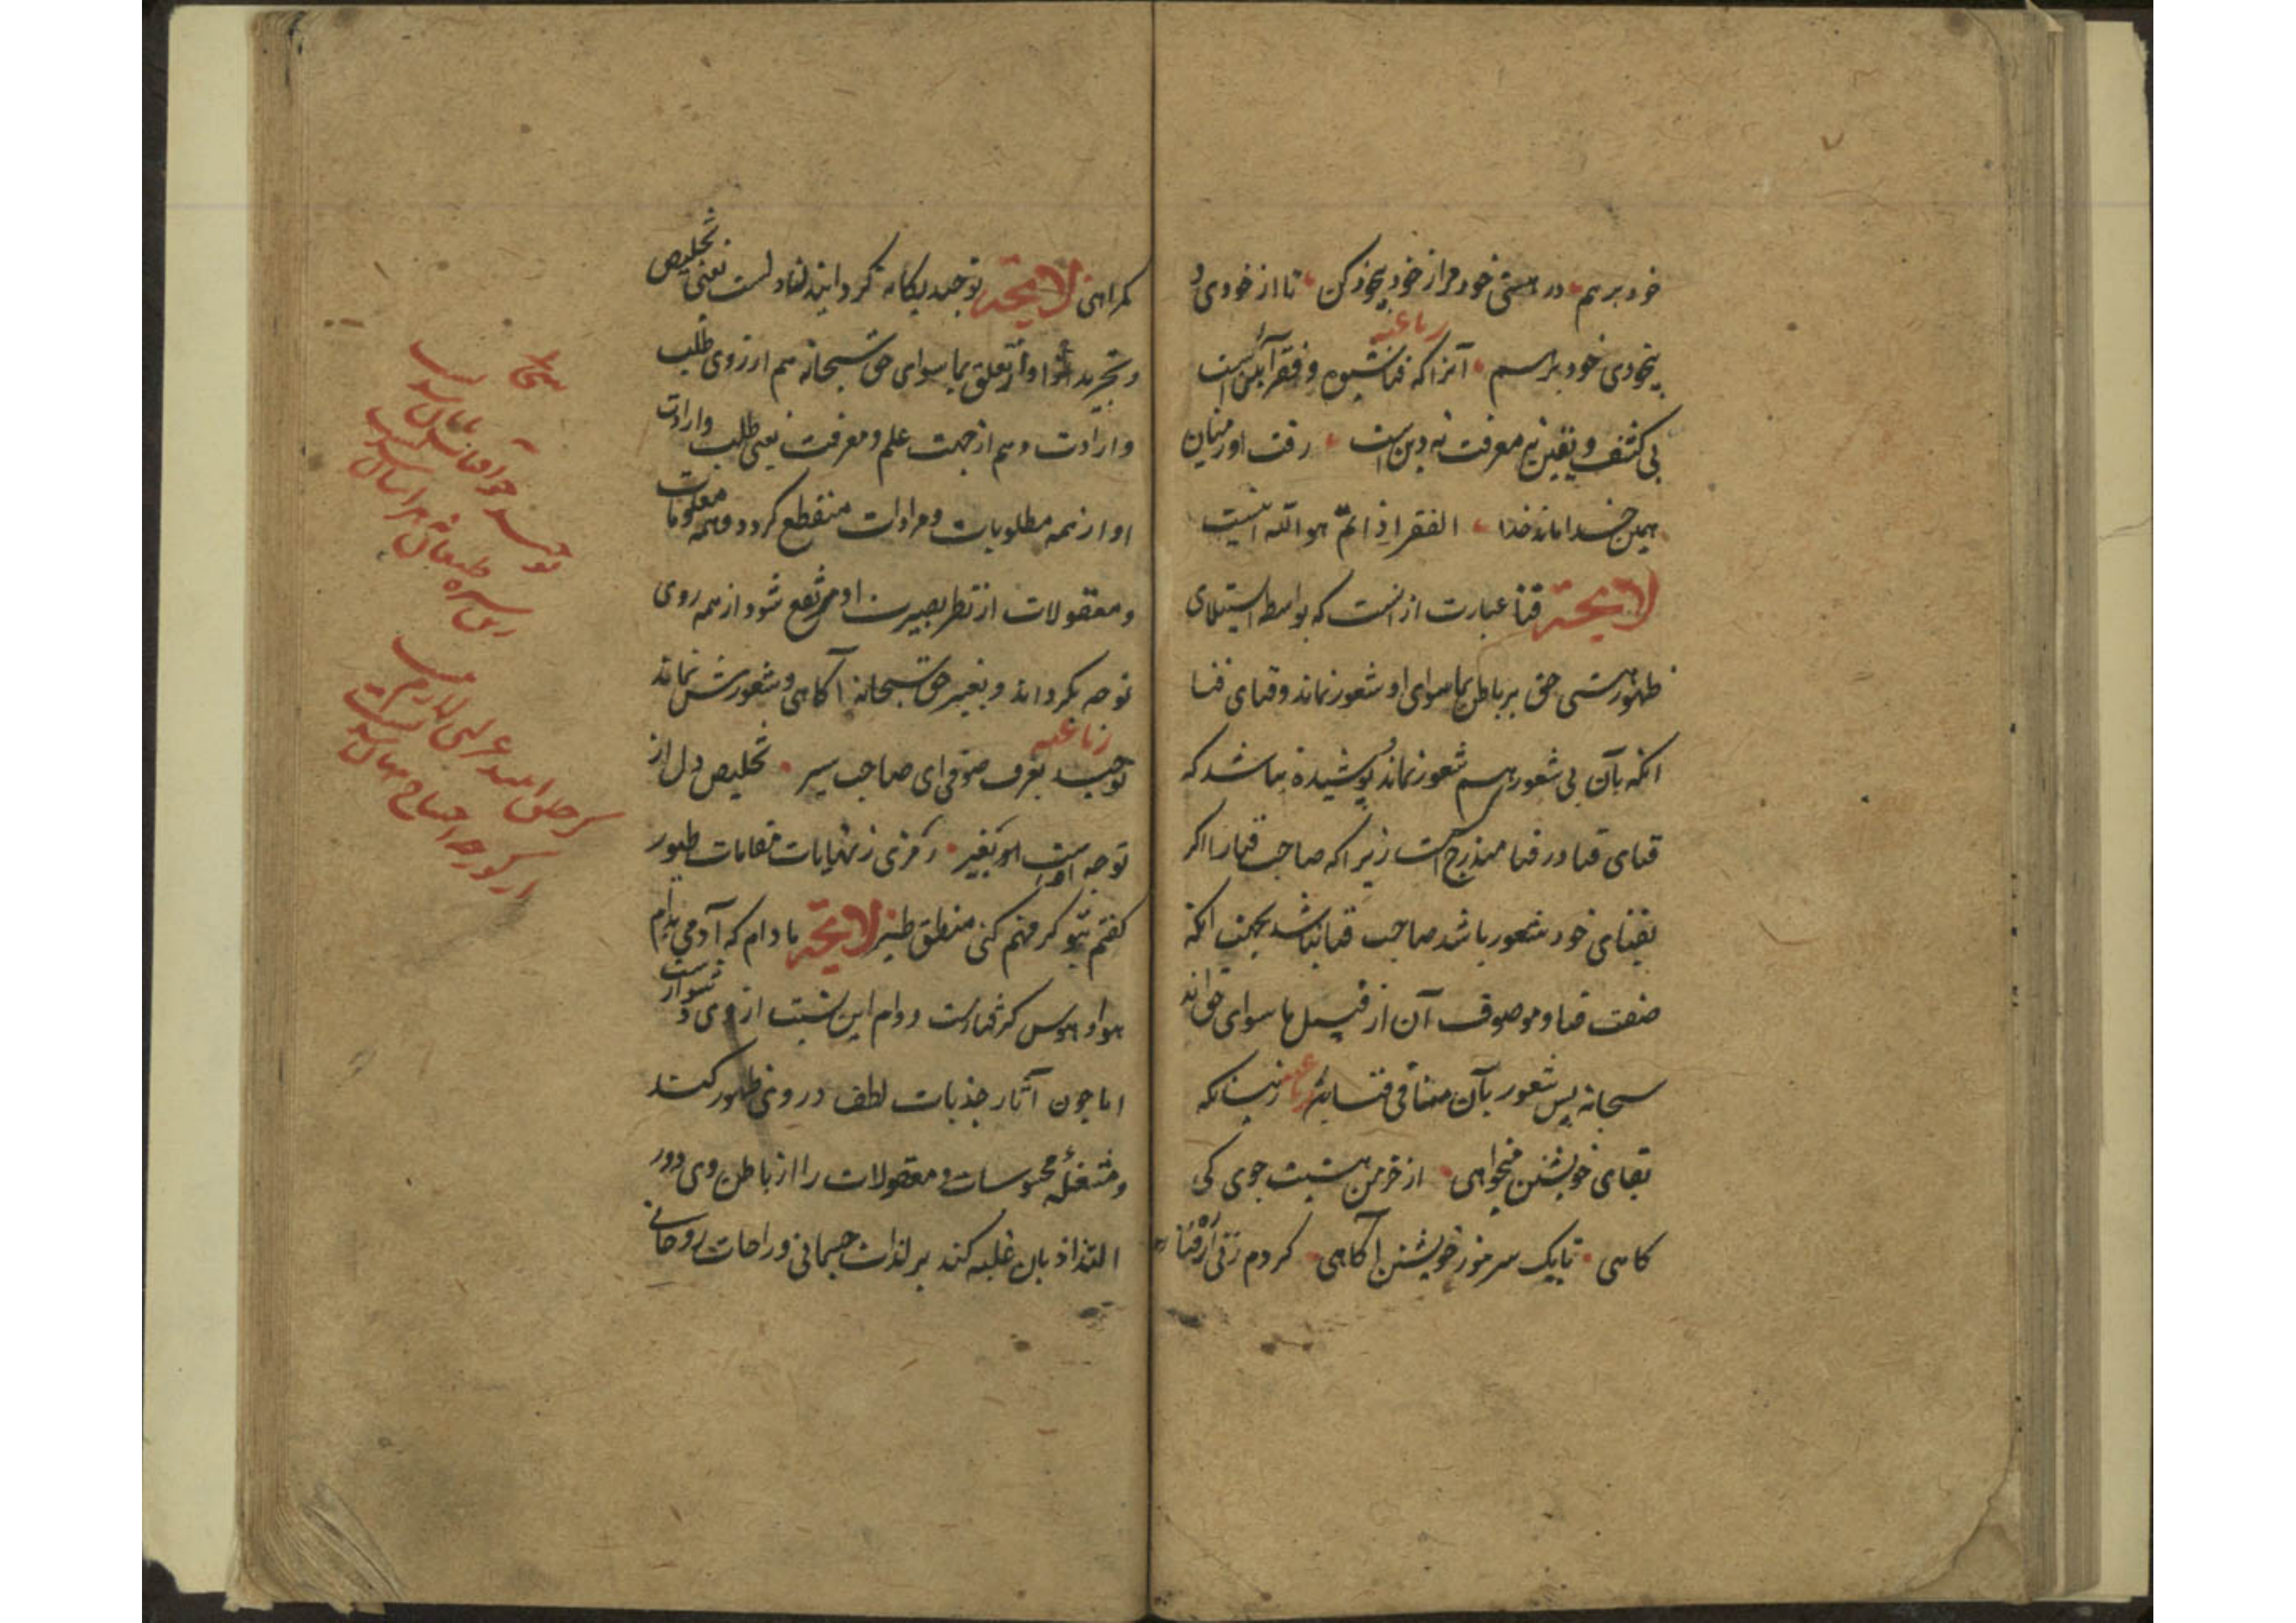 خود برهم در هستی خود مرا ز خود بیخود کن تا از خودی و
رباعیه
بیخودی خود برسم آنرا که فنا شیوه و فقر آیین است
نی کشف و یقین نه معرفت نه دین است رفت او ز میان
همین خدا ماند خدا الفقر اذا تم هو الله اینست
لایحة فنا عبارت از انست که بواسطه استیلای
ظهور هستی حق بر باطن بما سوای او شعور نماند و فنای فنا
انکه بآن بی شعور هم شعور نماند و پوشیده نباشد که
فنای فنا در فنا مندرج است زیرا که صاحب فنا را اگر
بفنای خود شعور باشد صاحب فنا نباشد بجهت انکه
صفت فنا و موصوف آن از قبیل ما سوای حق اند
سبحانه پس شعور بآن منافی فنا باشد رباعیه زینسانکه
بقای خویشتن میخواهی از خرمن هستیت جوی کی
کاهی تا یک سر مو ز خویشتن آگاهی گر دم زنی از ره فنا
گمراهی لایحة توحید یکانه گردانیدن دلست یعنی تخلیص
و تجرید او از تعلق بما سوای حق سبحانه هم از روی طلب
و ارادت و هم از جهت علم و معرفت یعنی طلب و ارادت
او از همه مطلوبات و مرادات منقطع گردد و همه معلومات
و معقولات از نظر بصیرت او مرتفع شود از همه روی
توجه بگرداند و بغیر حق سبحانه آگاهی و شعورش نماند
رباعیه
توحید بعرف صوفی ای صاحب سیر تخلیص دل از
توجه اوست بغیر رمزی ز نهایات مقامات طیور
گفتم بتو گر فهم کنی منطق طیر لایحة مادام که آدمی بدام
هوا و هوس گرفتارست دوام این نسبت از وی دشوارست
اما چون آثار جذبات لطف در وی ظهور کند
و مشغله محسوسات و معقولات را از باطن وی دور
التذاذ بان غلبه کند بر لذات جسمانی و راحات روحانی